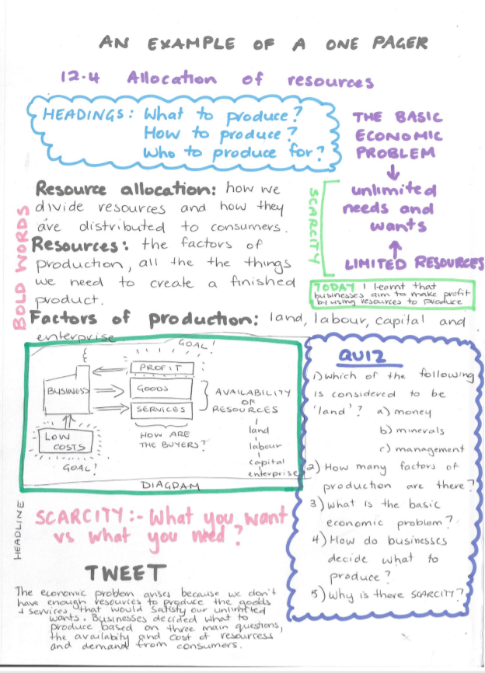 AN EXAMPLE OF A ONE PAGER
12.4 Allocation of resources
HEADINGS: What to produce?
How to produce?
Who to produce for?
THE BASIC
ECONOMIC
PROBLEM
unlimited
needs and
wants
LIMITED RESOURCES
SCARCITY
BOLD WORDS
Resource allocation: how we
divide resources and how they
are distributed to consumers.
Resources: the factors of
production, all the the things
we need to create a finished
product.
Factors of production: land, labour, capital and
enterprise
TODAY I learnt that
businesses aim to make profit
by using resources to produce
GOAL!
PROFIT
BUSINESS
GOODS
SERVICES
AVAILABILITY
OF
RESOURCES
land
labour
capital
enterprise
LOW
COSTS
GOAL!
HOW ARE
THE BUYERS?
DIAGDAM
QUIZ
1) Which of the following
is considered to be
'land'? a) money
b) minerals
c) management
2) How many factors of
production are there?
3) What is the basic
economic problem?
4) How do businesses
decide what to
produce?
5) Why is there SCARCITY?
HEADLINE
SCARCITY:- What you want
vs what you need?
TWEET
The economic problem arises because we don't
have enough resources to produce the goods
+ services that would satisfy our unlimited
wants. Businesses decided what to
produce based on three main questions,
the availabity and cost of resourcess
and demand from consumers.